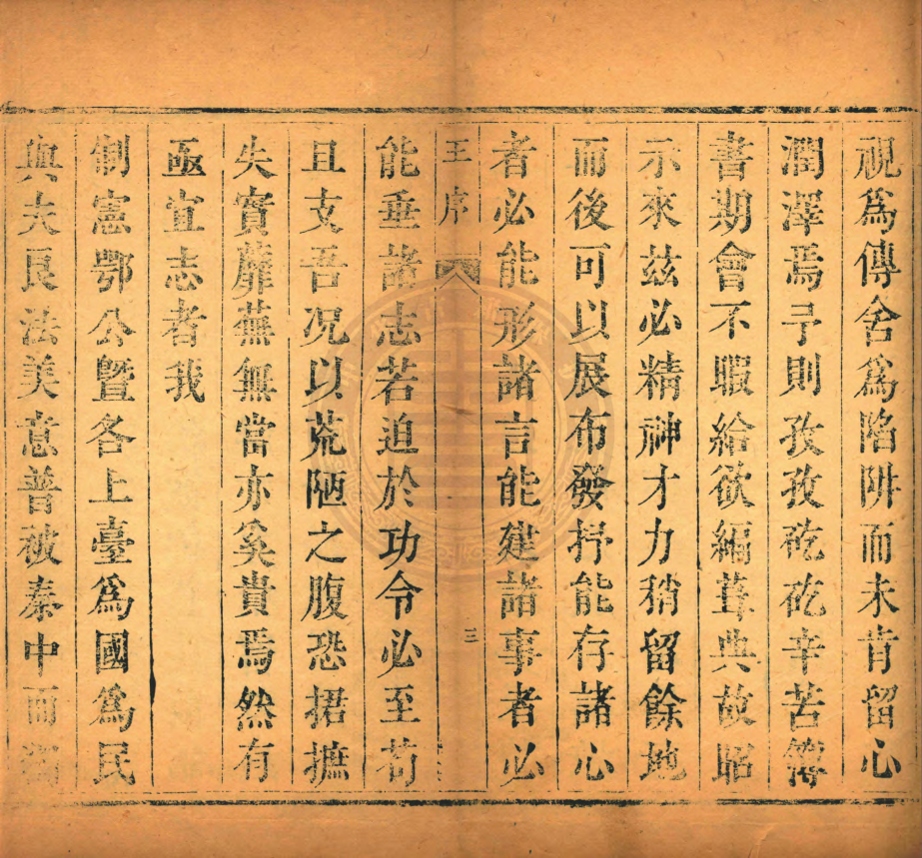 視爲傳舍爲陷阱而未肯留心
潤澤焉予則孜孜矻矻辛苦簿
書期會不暇給欲編葺典故昭
示來茲必精神才力稍留餘地
而後可以展布發抒能存諸心
者必能形諸言能建諸事者必
王序
三
能垂諸志若迫於功令必至苟
且支吾况以荒陋之腹恐捃摭
失實蘼蕪無當亦奚貴焉然有
亟宜志者我
制憲鄂公曁各上臺爲國爲民
與夫良法美意普被秦中而